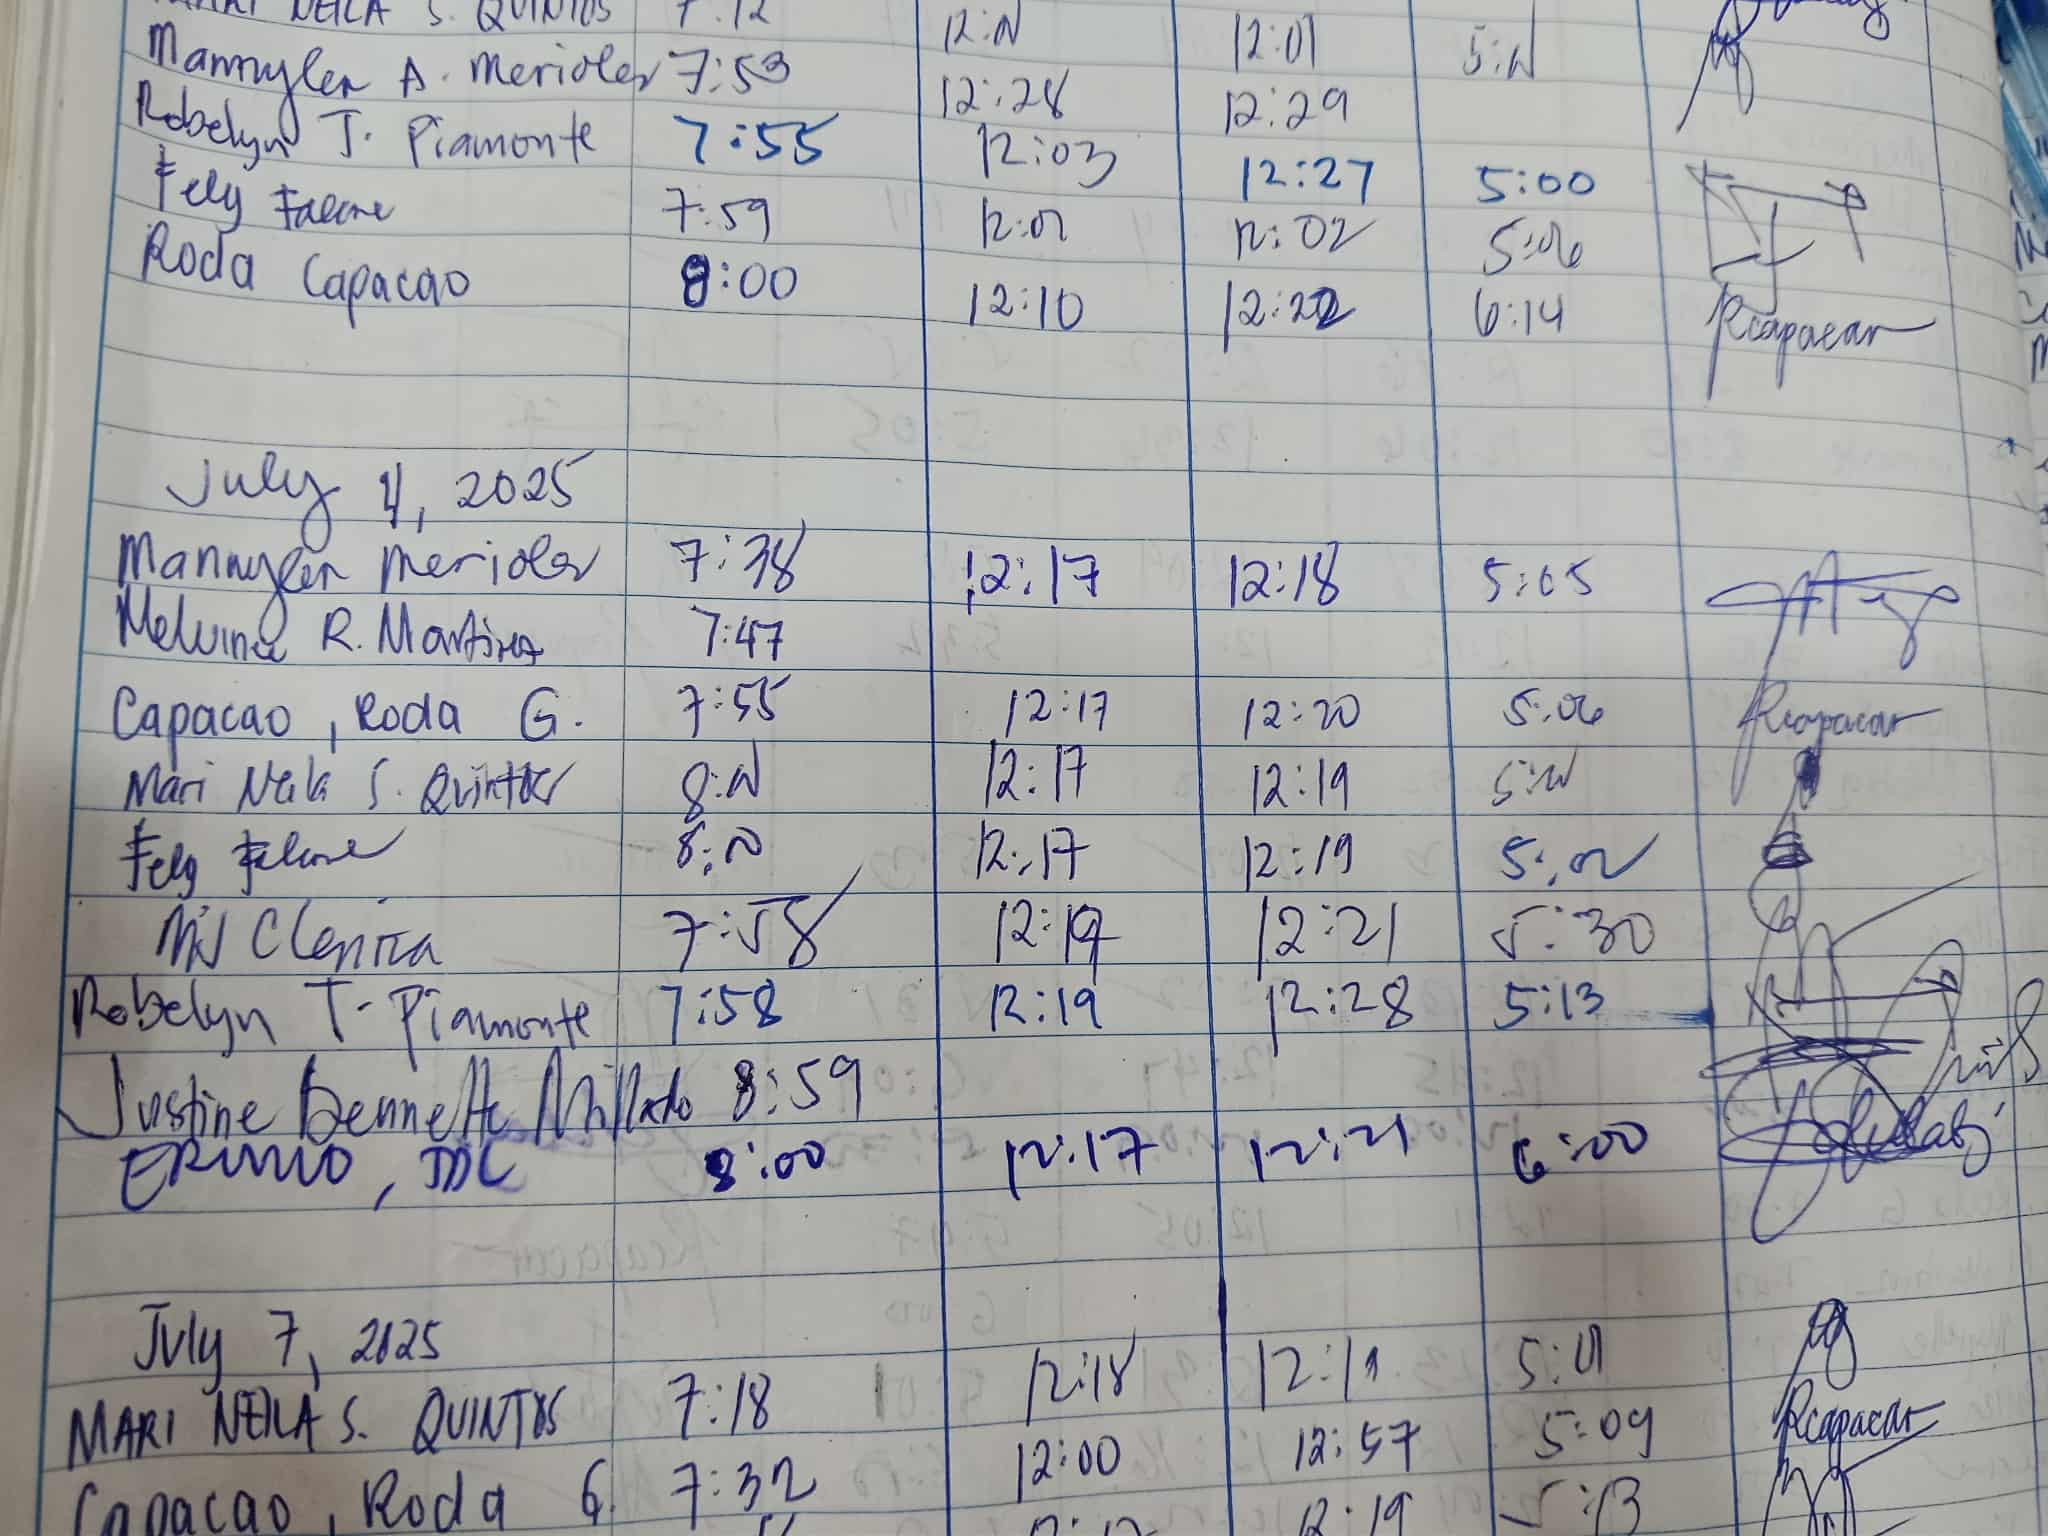 MARI NEILA S. QUINTOS 7:12 12:N 12:01 5:N
Mannylen A. Merioles 7:53 12:28 12:29
Robelyn T. Piamonte 7:55 12:03 12:27 5:00
Fely Falcne 7:59 12:01 12:02 5:06
Roda Capacao 8:00 12:10 12:22 6:14 Rcapacao
July 4, 2025
Mannylen Merioles 7:38 12:17 12:18 5:05
Melvina R. Martinez 7:47
Capacao, Roda G. 7:55 12:17 12:20 5:06 Rcapacao
Mari Neila S. Quintos 8:N 12:17 12:19 5:N
Fely Falcne 8:N 12:17 12:19 5:02
MV Clenica 7:58 12:19 12:21 5:30
Robelyn T. Piamonte 7:58 12:19 12:28 5:13
Justine Bennette Millado 8:59
ERMINO, JDC 8:00 12:17 12:21 6:00
July 7, 2025
MARI NEILA S. QUINTOS 7:18 12:18 12:19 5:01
Capacao, Roda G. 7:32 12:00 12:57 5:09 Rcapacao
12:17 12:19 5:13